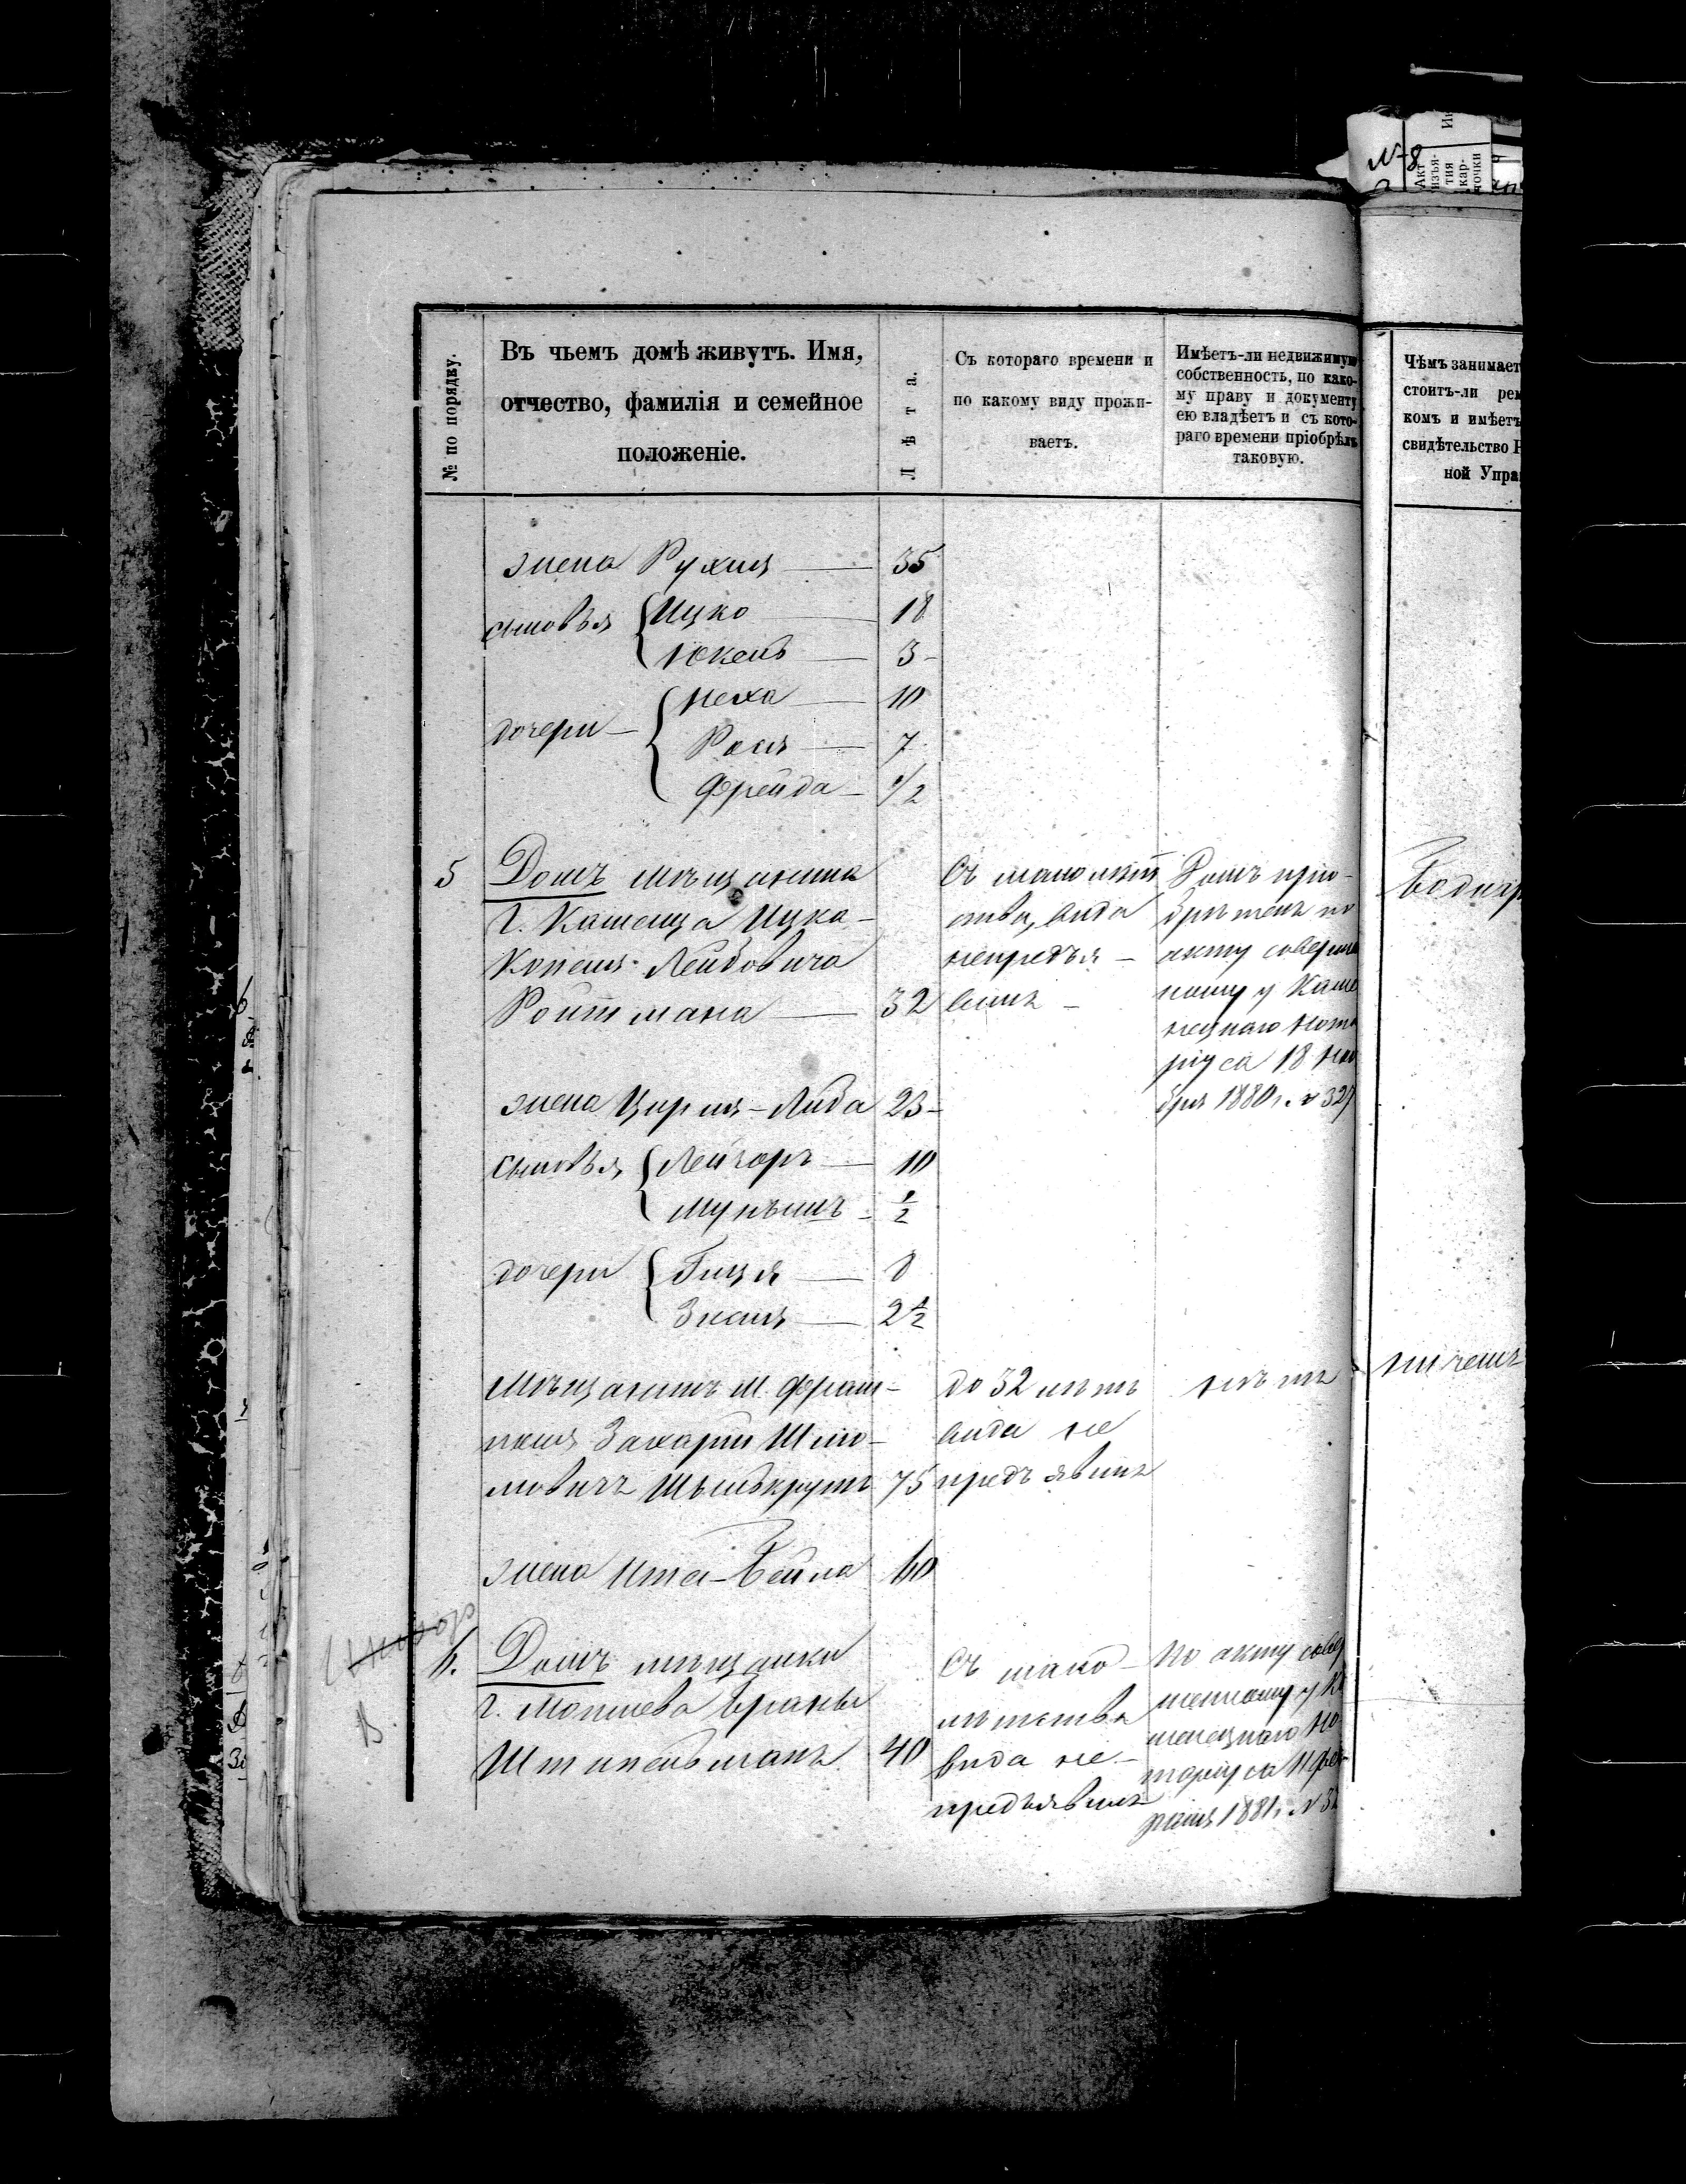 № 8
Акт изъя-тия кар-точки
№ по порядку.
Въ чьемъ домѣ живутъ. Имя,
отчество, фамилія и семейное
положеніе.
Лѣта.
Съ котораго времени и
по какому виду прожи-
ваетъ.
Имѣетъ-ли недвижимую
собственность, по како-
му праву и документу
ею владѣетъ и съ кото-
раго времени пріобрѣлъ
таковую.
Чѣмъ занимает
стоитъ-ли рем
комъ и имѣетъ
свидѣтельство Р
ной Упра
жена Рухля — 35
сыновья Ицко 18
Юкель — 3
дочери — Неха — 10
Рося — 7
Фрейда — 1/2
5
Домъ мѣщанина
г. Каменца Ицка-
Копеля Лейбовича
Ройтмана — 32
Съ малолѣт
ства, вида
непредъя-
вилъ
Домъ прiо-
брѣтенъ по
акту соверше
ному у Каме
нецкаго Нота
ріуса 18 Ноя
бря 1880 г. № 327
жена Цирля-Либа 23
сыновья Лейзоръ — 10
Мунышъ 1/2
дочери Гиця — 8
Знеля — 2 1/2
Мѣщанинъ м. Фрам-
поля Захарій Шмо-
мовичъ 75
до 32 лѣтъ
вида не
предъявилъ
нѣтъ
ничемъ
жена Ита-Бейла 60
6.
Домъ мѣщанки
г. Могилева Браны
Штипельманъ 40
Съ мало-
лѣтства
вида не-
предъявила
По акту совер
шенному у Ка
менецкаго Но
таріуса 11 Фев
раля 1881 г. № 32